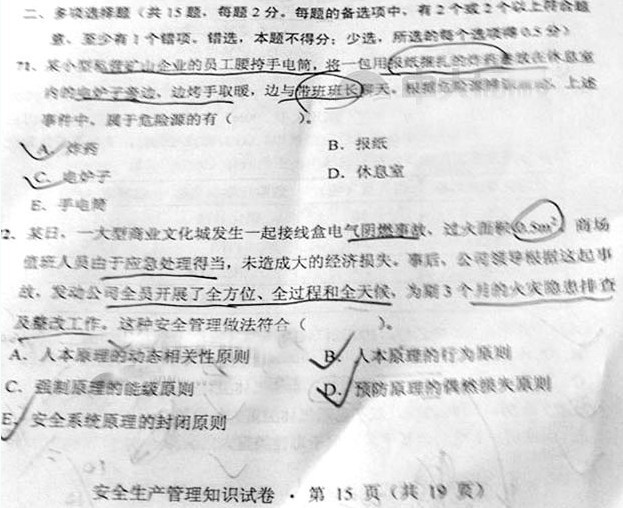 二、多项选择题（共 15 题，每题 2 分。每题的备选项中，有 2 个或 2 个以上符合题
意，至少有 1 个错项。错选，本题不得分；少选，所选的每个选项得 0.5 分）
71、某小型私营矿山企业的员工腰挎手电筒，将一包用报纸捆扎的炸药拿放在休息室
内的电炉子旁边，边烤手取暖，边与带班班长聊天。根据危险源辨识 上述
事件中，属于危险源的有（ ）。
A、炸药
B、报纸
C、电炉子
D、休息室
E、手电筒
2、某日，一大型商业文化城发生一起接线盒电气阴燃事故，过火面积0.5m²，商场
值班人员由于应急处理得当，未造成大的经济损失。事后，公司领导根据这起事
故，发动公司全员开展了全方位、全过程和全天候，为期 3 个月的火灾隐患排查
及整改工作。这种安全管理做法符合（ ）。
A、人本原理的动态相关性原则
B、人本原理的行为原则
C、强制原理的能级原则
D、预防原理的偶然损失原则
E、安全系统原理的封闭原则
安全生产管理知识试卷 · 第 15 页（共 19 页）